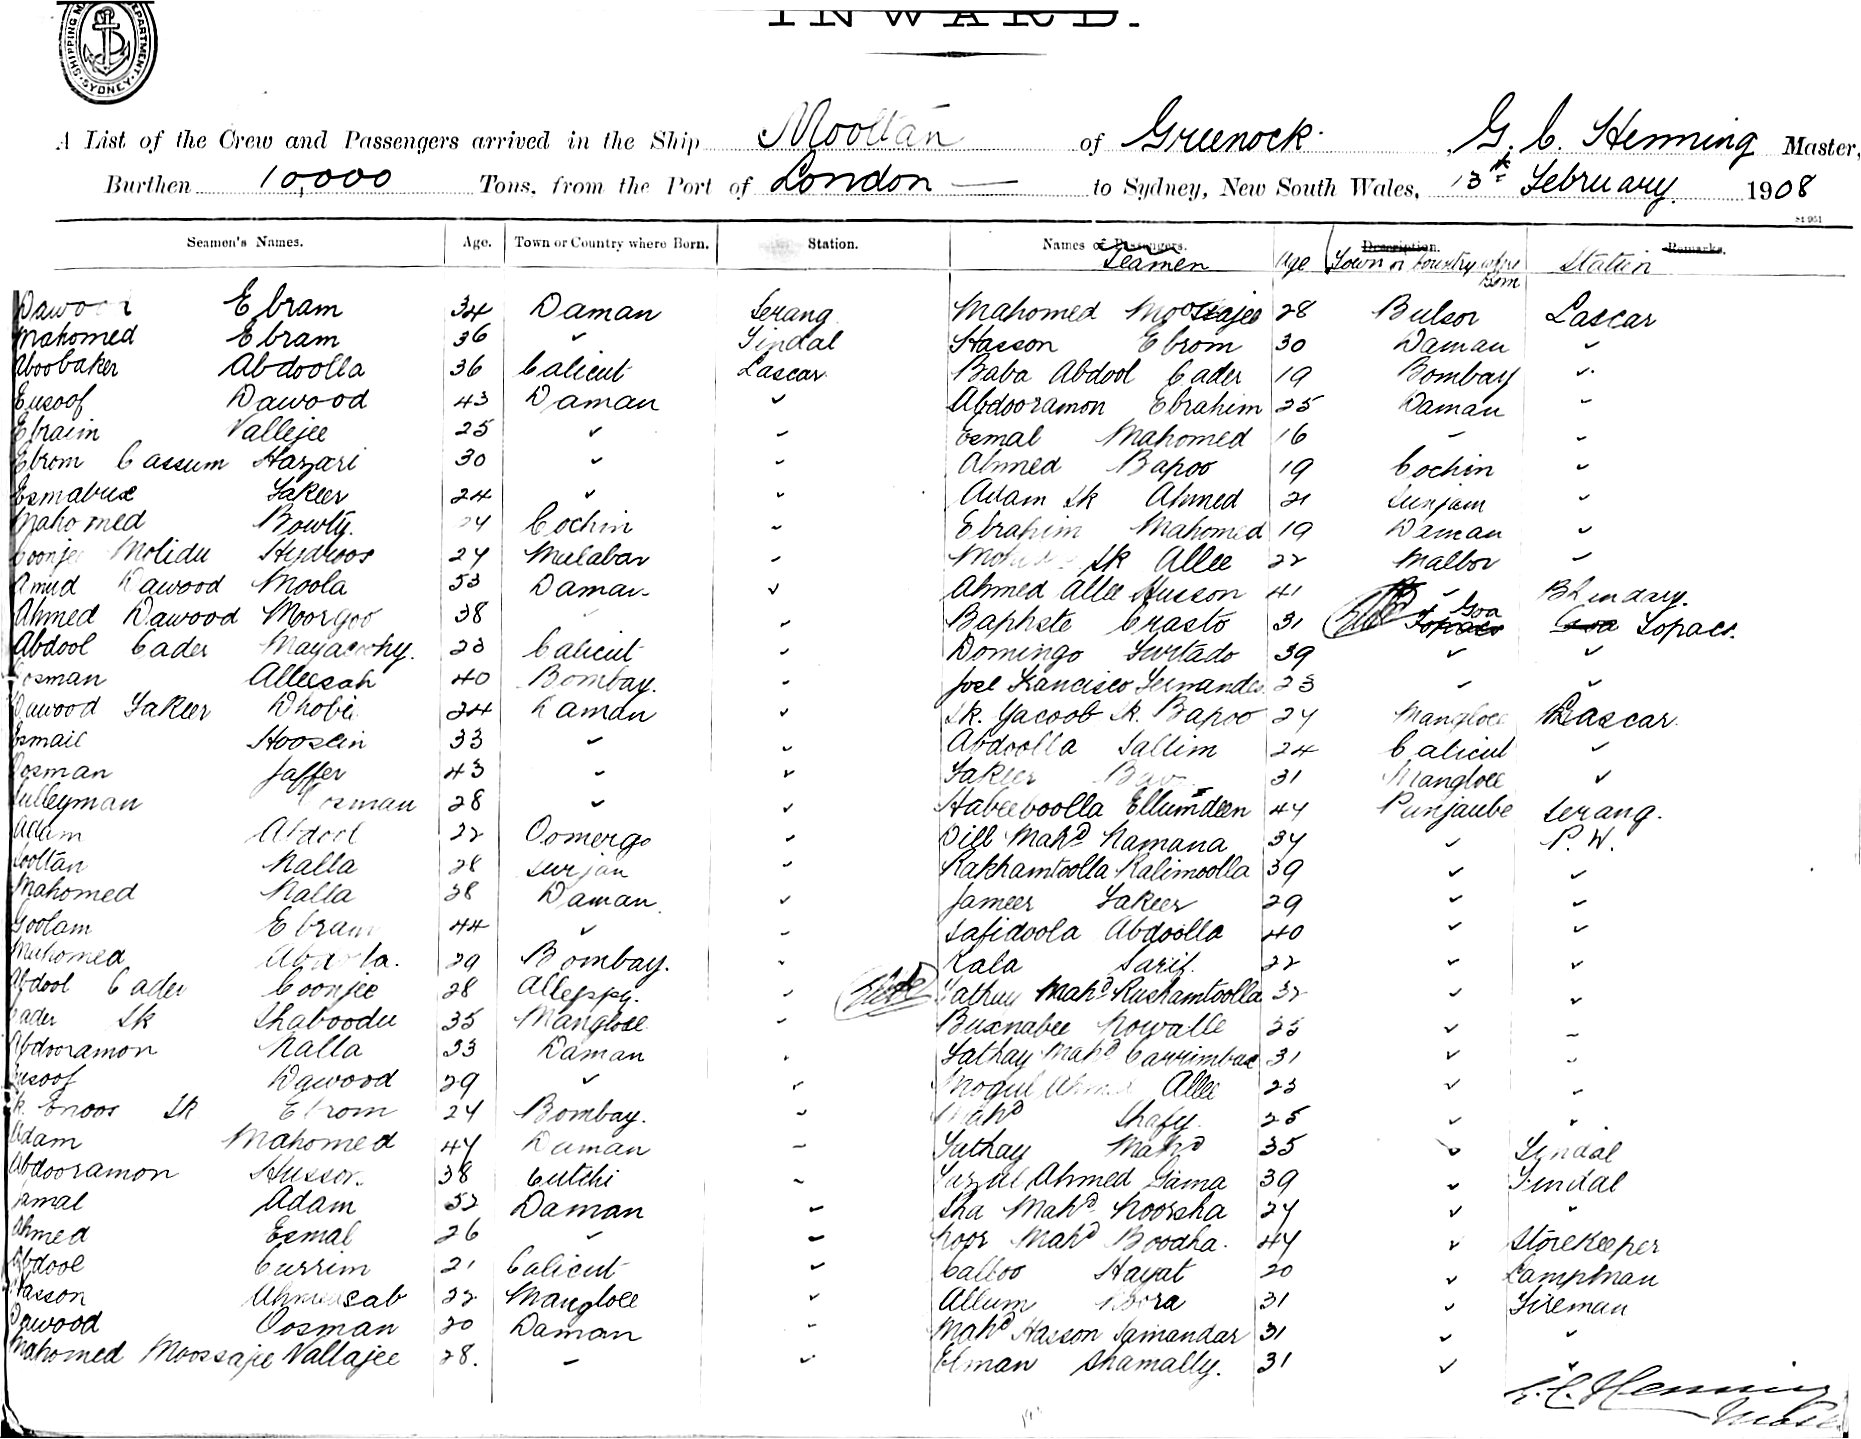 INWARD.
SHIPPING M DEPARTMENT SYDNEY
A List of the Crew and Passengers arrived in the Ship Mooltan of Greenock. G. C. Henning Master,
Burthen 10,000 Tons, from the Port of London — to Sydney, New South Wales, 13th February 1908
Seamen's Names. Age. Town or Country where Born. Station. Names of Passengers. Seamen Age Description. Town or Country where Born Remarks. Station
Dawood Ebram 34 Daman Serang Mahomed Moosajee 28 Bulsor Lascar
Mahomed Ebram 36 " Tindal Hasson Ebrom 30 Daman "
Aboobaker Abdoolla 36 Calicut Lascar Baba Abdool Cader 19 Bombay "
Eusoof Dawood 43 Daman " Abdooramon Ebrahim 25 Daman "
Ebraim Vallejee 25 " " Esmal Mahomed 16 " "
Ebrom Cassum Hazari 30 " " Ahmed Bapoo 19 Cochin "
Esmabux Fakeer 24 " " Adam Sk Ahmed 21 Sunjam "
Mahomed Bowty. 24 Cochin " Ebrahim Mahomed 19 Daman "
Coonjee Molidu Hydroos 24 Malabar " Sk Allee 22 Malbor "
Amud Dawood Moola 53 Daman " Ahmed Allee Husson 41 " Bhendary.
Ahmed Dawood Morgoo 38 " Baphste Crasto 31 Goa Topacs Goa Topacs.
Abdool Cader 23 Calicut " Domingo Furtado 39 " "
Oosman Alleesah 40 Bombay. " Jose Francisco Fernandes 23 " "
Dawood Fakeer Dhobi 24 Daman " Sk. Yacoob Sk. Bapoo 24 Mangloce Lascar.
Esmail Hoosein 33 " " Abdoolla Sallim 24 Calicut "
Oosman Jaffer 43 " " Fakeer 31 Mangloce "
Sulleyman Oosman 28 " " Habeeboolla Ellumdeen 44 Punjaube Serang.
Adam Abdool 22 Oomergo " Dill Mahd Namana 34 " P. W.
Sooltan Nalla 28 Surjan " Rakhamtoolla Kalimoolla 39 " "
Mahomed Nalla 38 Daman. " Jameer Fakeer 29 " "
Goolam Ebram 44 " " Safidoola Abdoolla 40 " "
Mahomed Abdoola. 29 Bombay. " Kala Sarif. 22 " "
Abdool Cader Coonjee 28 Alleppy. " Fathuy Mahd Ruskamtoolla 32 " "
Cader Sk Shaboodu 35 Mangloce " Buxnabee Nowalle 35 " "
Abdooramon Nalla 33 Daman " Fathay Mahd Carrimbux 31 " "
Eusoof Dawood 29 " " Mogul Ahmed Allee 23 " "
Sk. Enoos Sk Ebrom 24 Bombay. " Mahd Shafy. 25 " "
Adam Mahomed 44 Daman " Fathay Mahd 35 " Tindal
Abdooramon Husson. 38 Cutchi " Ahmed Gama 39 " Tindal
Jamal Adam 52 Daman " Sha Mahd Noorsha 24 " "
Ahmed Esmal 26 " " Noor Mahd Boodha. 44 " Storekeeper
Abdool Currim 21 Calicut " Calloo Hayat 20 " Lampman
Hasson Ahmedsab 22 Mangloce " Allum Noora 31 " Fireman
Dawood Oosman 20 Daman " Mahd Hasson Samandar 31 " "
Mahomed Moossajee Vallajee 28. " " Elman Shamally. 31 " "
G. C. Henning
Master